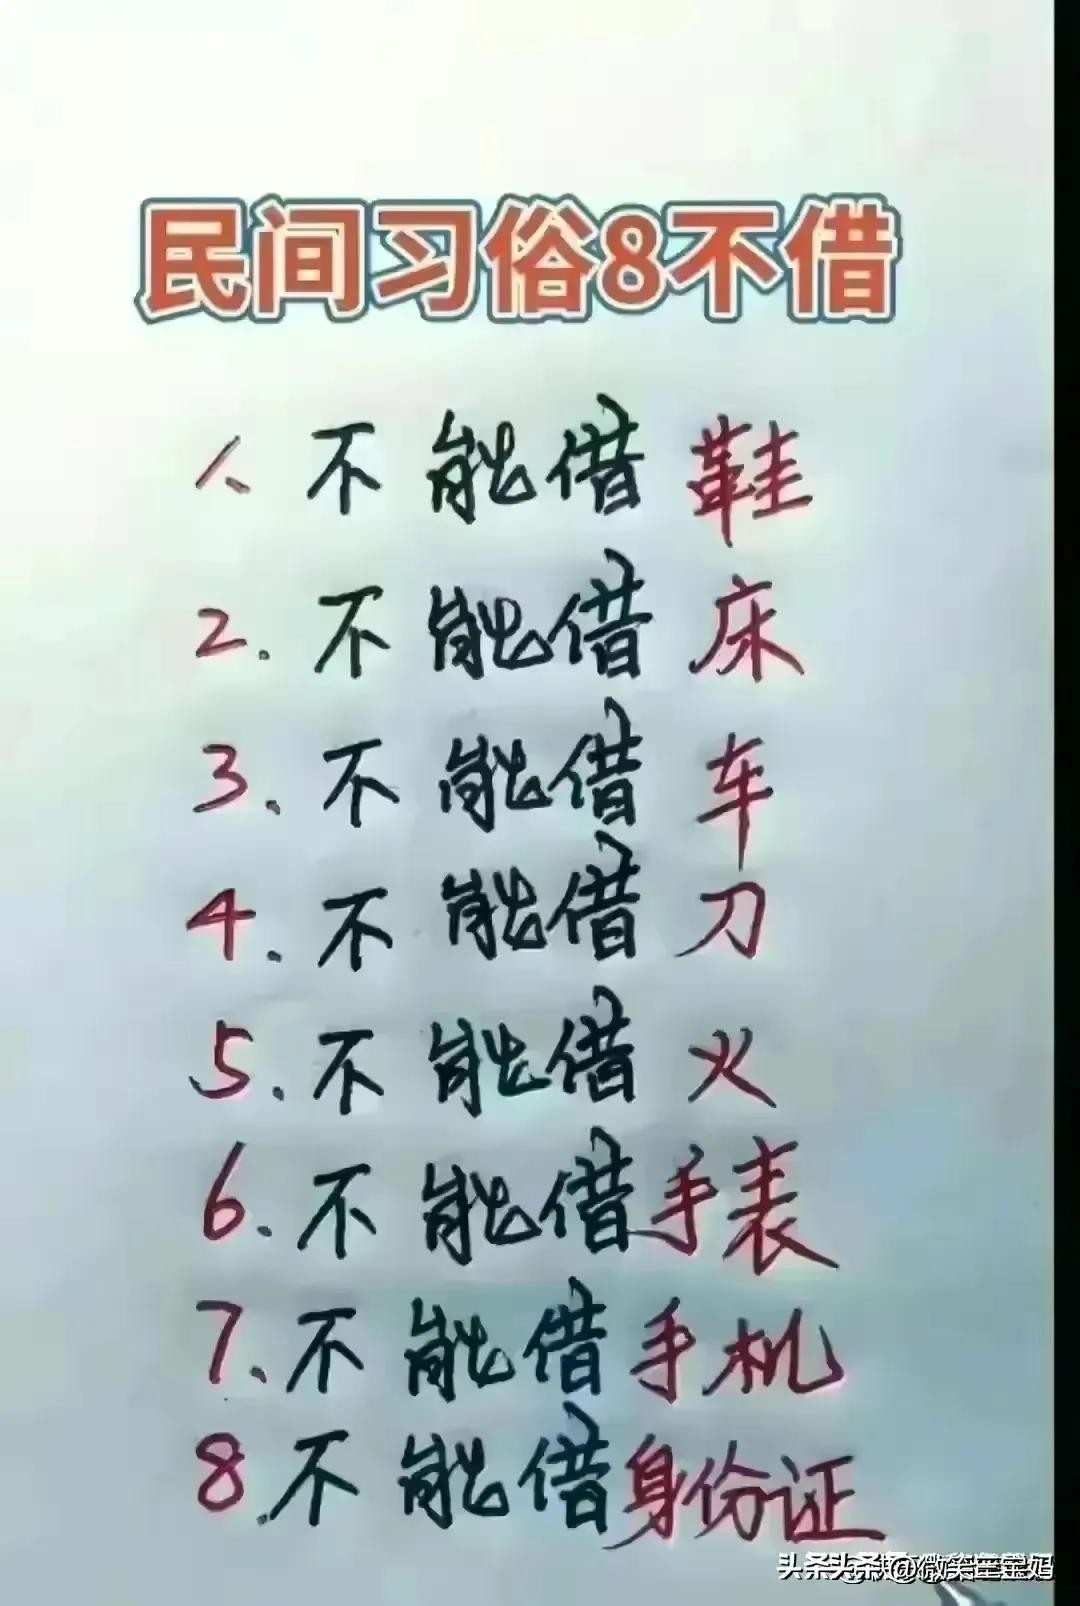 民间习俗8不借
1、不能借鞋
2.不能借床
3、不能借车
4.不能借刀
5.不能借火
6.不能借手表
7、不能借手机
8.不能借身份证